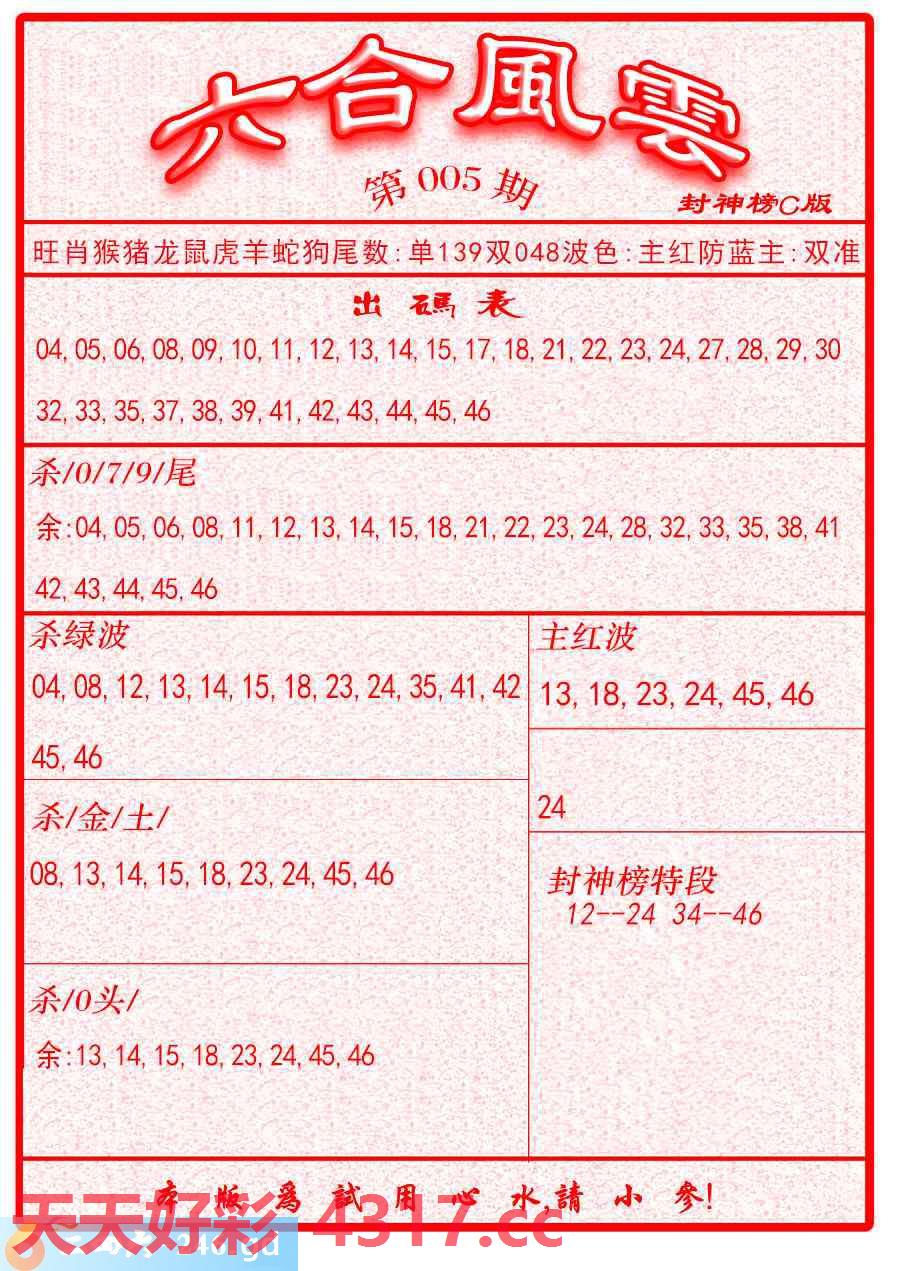 六合風雲
第005期
封神榜C版
旺肖猴猪龙鼠虎羊蛇狗尾数:单139双048波色:主红防蓝主:双准
出碼表
04,05,06,08,09,10,11,12,13,14,15,17,18,21,22,23,24,27,28,29,30
32,33,35,37,38,39,41,42,43,44,45,46
杀/0/7/9/尾
余:04,05,06,08,11,12,13,14,15,18,21,22,23,24,28,32,33,35,38,41
42,43,44,45,46
杀绿波
04,08,12,13,14,15,18,23,24,35,41,42
45,46
主红波
13,18,23,24,45,46
24
杀/金/土/
08,13,14,15,18,23,24,45,46
封神榜特段
12--24 34--46
杀/0头/
余:13,14,15,18,23,24,45,46
本版爲試用心水,請小參!
天天好彩 4317.cc
246.gd